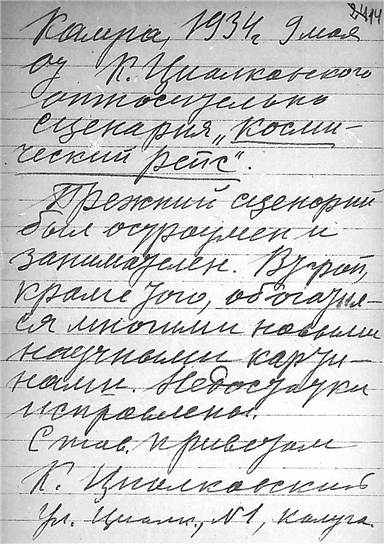 2414
Калуга, 1934 г. 9 мая
от К. Циолковского
относительно
сценария „Косми-
ческий рейс".
Прежний сценарий
был остроумен и
занимателен. Второй,
кроме того, обогатил-
ся многими новыми
научными карти-
нами. Недостатки
исправлены.
С тов. приветом
К. Циолковский
ул. Циолк., N1, Калуга.